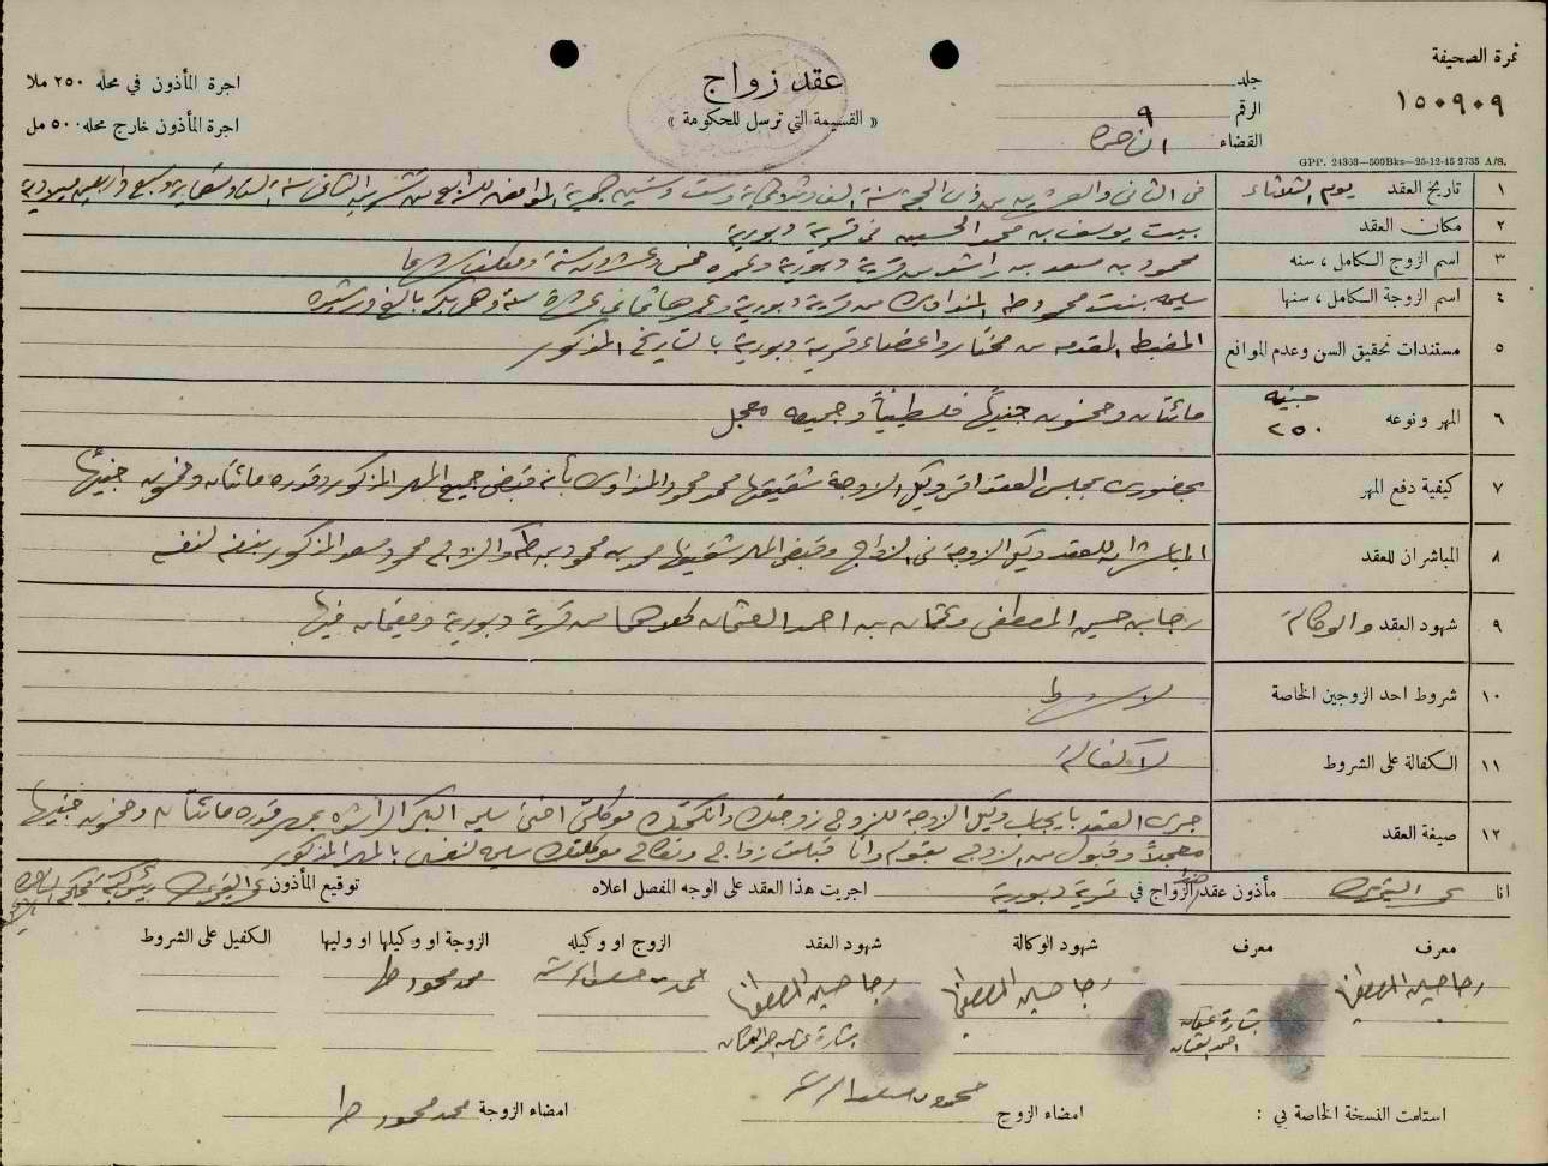 نمرة الصحيفة
١٥٠٩٠٩
جلد
الرقم ٩
القضاء الناصرة
عقد زواج
« القسيمة التي ترسل للحكومة »
اجرة المأذون في محله ٢٥٠ ملا
اجرة المأذون خارج محله ٥٠٠ مل
GPP. 24303—500Bks—25-12-45 2735 A/S.
١ تاريخ العقد يوم الثلاثاء في الثاني والعشرين من ذي الحجة سنة الف وثلاثماية وست وستين هجرية الموافق للرابع من تشرين الثاني سنة الف وتسعماية وسبع واربعين ميلادية
٢ مكان العقد بيت يوسف بن محمد الحسين في قرية دبورية
٣ اسم الزوج الكامل ، سنه محمود بن مسعد بن راشد من قرية دبورية وعمره خمس وعشرون سنة ومكلف شرعا
٤ اسم الزوجة الكامل ، سنها سليمه بنت محمود طه من قرية دبورية وعمرها ثماني عشرة سنة وهي بكر بالغ ورشيده
٥ مستندات تحقيق السن وعدم الموانع المضبطه المقدمه من مختار واعضاء قرية دبورية بالتاريخ المذكور
٦ المهر ونوعه جنيه ٢٥٠ مائتان وخمسون جنيهاً فلسطينياً وجميعه معجل
٧ كيفية دفع المهر بحضوري بمجلس العقد اقر وكيل الزوجة شقيقها محمد محمود بأنه قبض جميع المهر المذكور وقدره مائتان وخمسون جنيهاً
٨ المباشران للعقد المباشران للعقد وكيل الزوجة في الزواج وقبض المهر شقيقها محمد بن محمود بن طه والزوج محمود مسعد المذكور بنفسه لنفسه
٩ شهود العقد والوكالة رجا بن حسين المصطفى وعثمان بن احمد العثمان كلاهما من قرية دبورية ومقيمان فيها
١٠ شروط احد الزوجين الخاصة لا شروط
١١ الكفالة على الشروط لا كفالة
١٢ صيغة العقد جرى العقد بايجاب وكيل الزوجة للزوج زوجتك وانكحتك موكلتي اختي سليمه البكر الراشده بمهر قدره مائتان وخمسون جنيها
معجلاً وقبول من الزوج بقوله وانا قبلت زواج ونكاح موكلتك سليمه لنفسي بالمهر المذكور
انا مأذون عقد الزواج في قرية دبورية اجريت هذا العقد على الوجه المفصل اعلاه توقيع المأذون
معرف معرف شهود الوكالة شهود العقد الزوج او وكيله الزوجة او وكيلها او وليها الكفيل على الشروط
رجا حسين المصطفى رجا حسين المصطفى رجا حسين المصطفى محمد محمود طه
بشارة عثمان
احمد العثمان
استلمت النسخة الخاصة بي : امضاء الزوج امضاء الزوجة محمد محمود طه